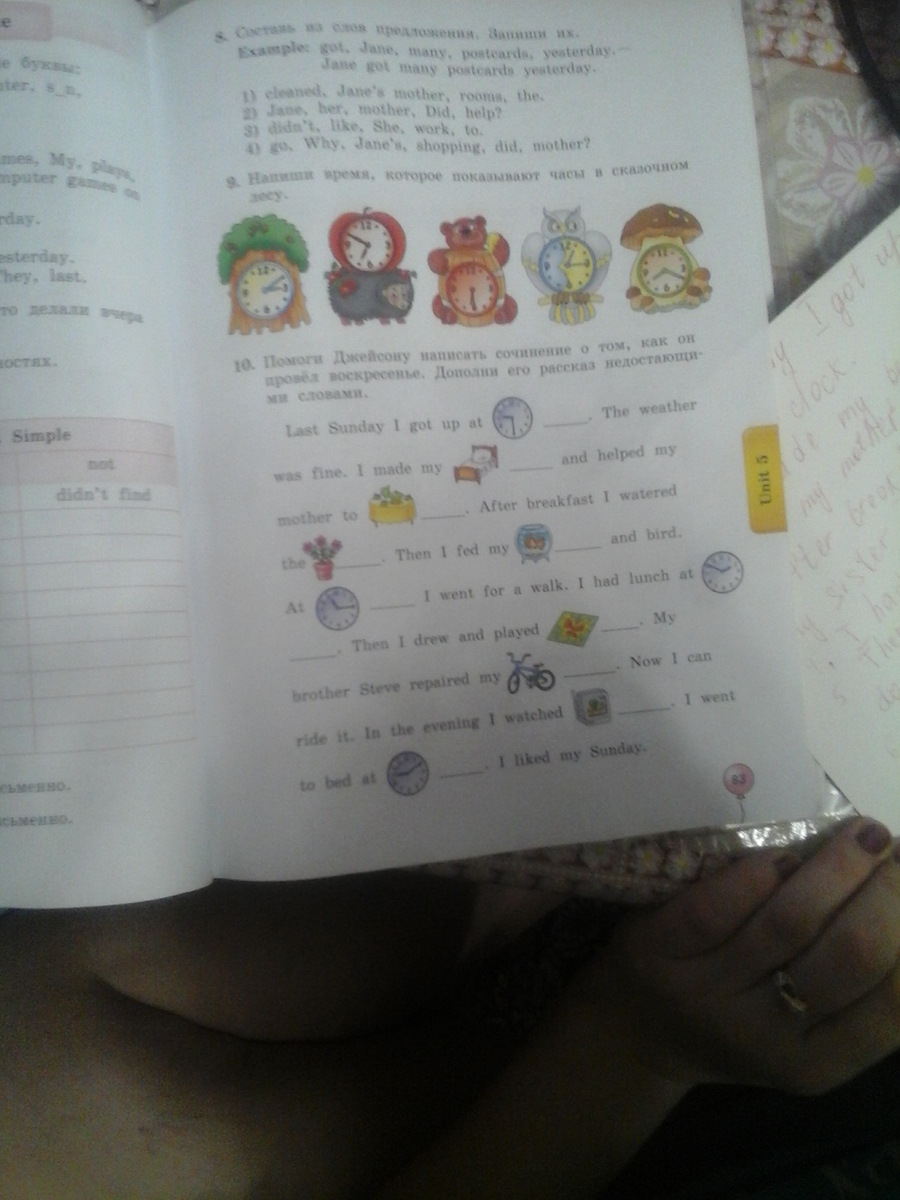 е
е буквы:
uter, s_n,
mes, My, plays,
mputer games on
rday.
esterday.
They, last.
то делали вчера
ностях.
Simple
not
didn't find
сьменно.
сьменно.
8. Составь из слов предложения. Запиши их.
Example: got, Jane, many, postcards, yesterday.—
Jane got many postcards yesterday.
1) cleaned, Jane's mother, rooms, the.
2) Jane, her, mother, Did, help?
3) didn't, like, She, work, to.
4) go, Why, Jane's, shopping, did, mother?
9. Напиши время, которое показывают часы в сказочном
лесу.
10. Помоги Джейсону написать сочинение о том, как он
провёл воскресенье. Дополни его рассказ недостающи-
ми словами.
Last Sunday I got up at _____. The weather
was fine. I made my _____ and helped my
mother to _____. After breakfast I watered
the _____. Then I fed my _____ and bird.
At _____ I went for a walk. I had lunch at
_____. Then I drew and played _____. My
brother Steve repaired my _____. Now I can
ride it. In the evening I watched _____. I went
to bed at _____. I liked my Sunday.
83
Unit 5
I got up
clock.
de my
my mother
fter
y sister
I ha
The